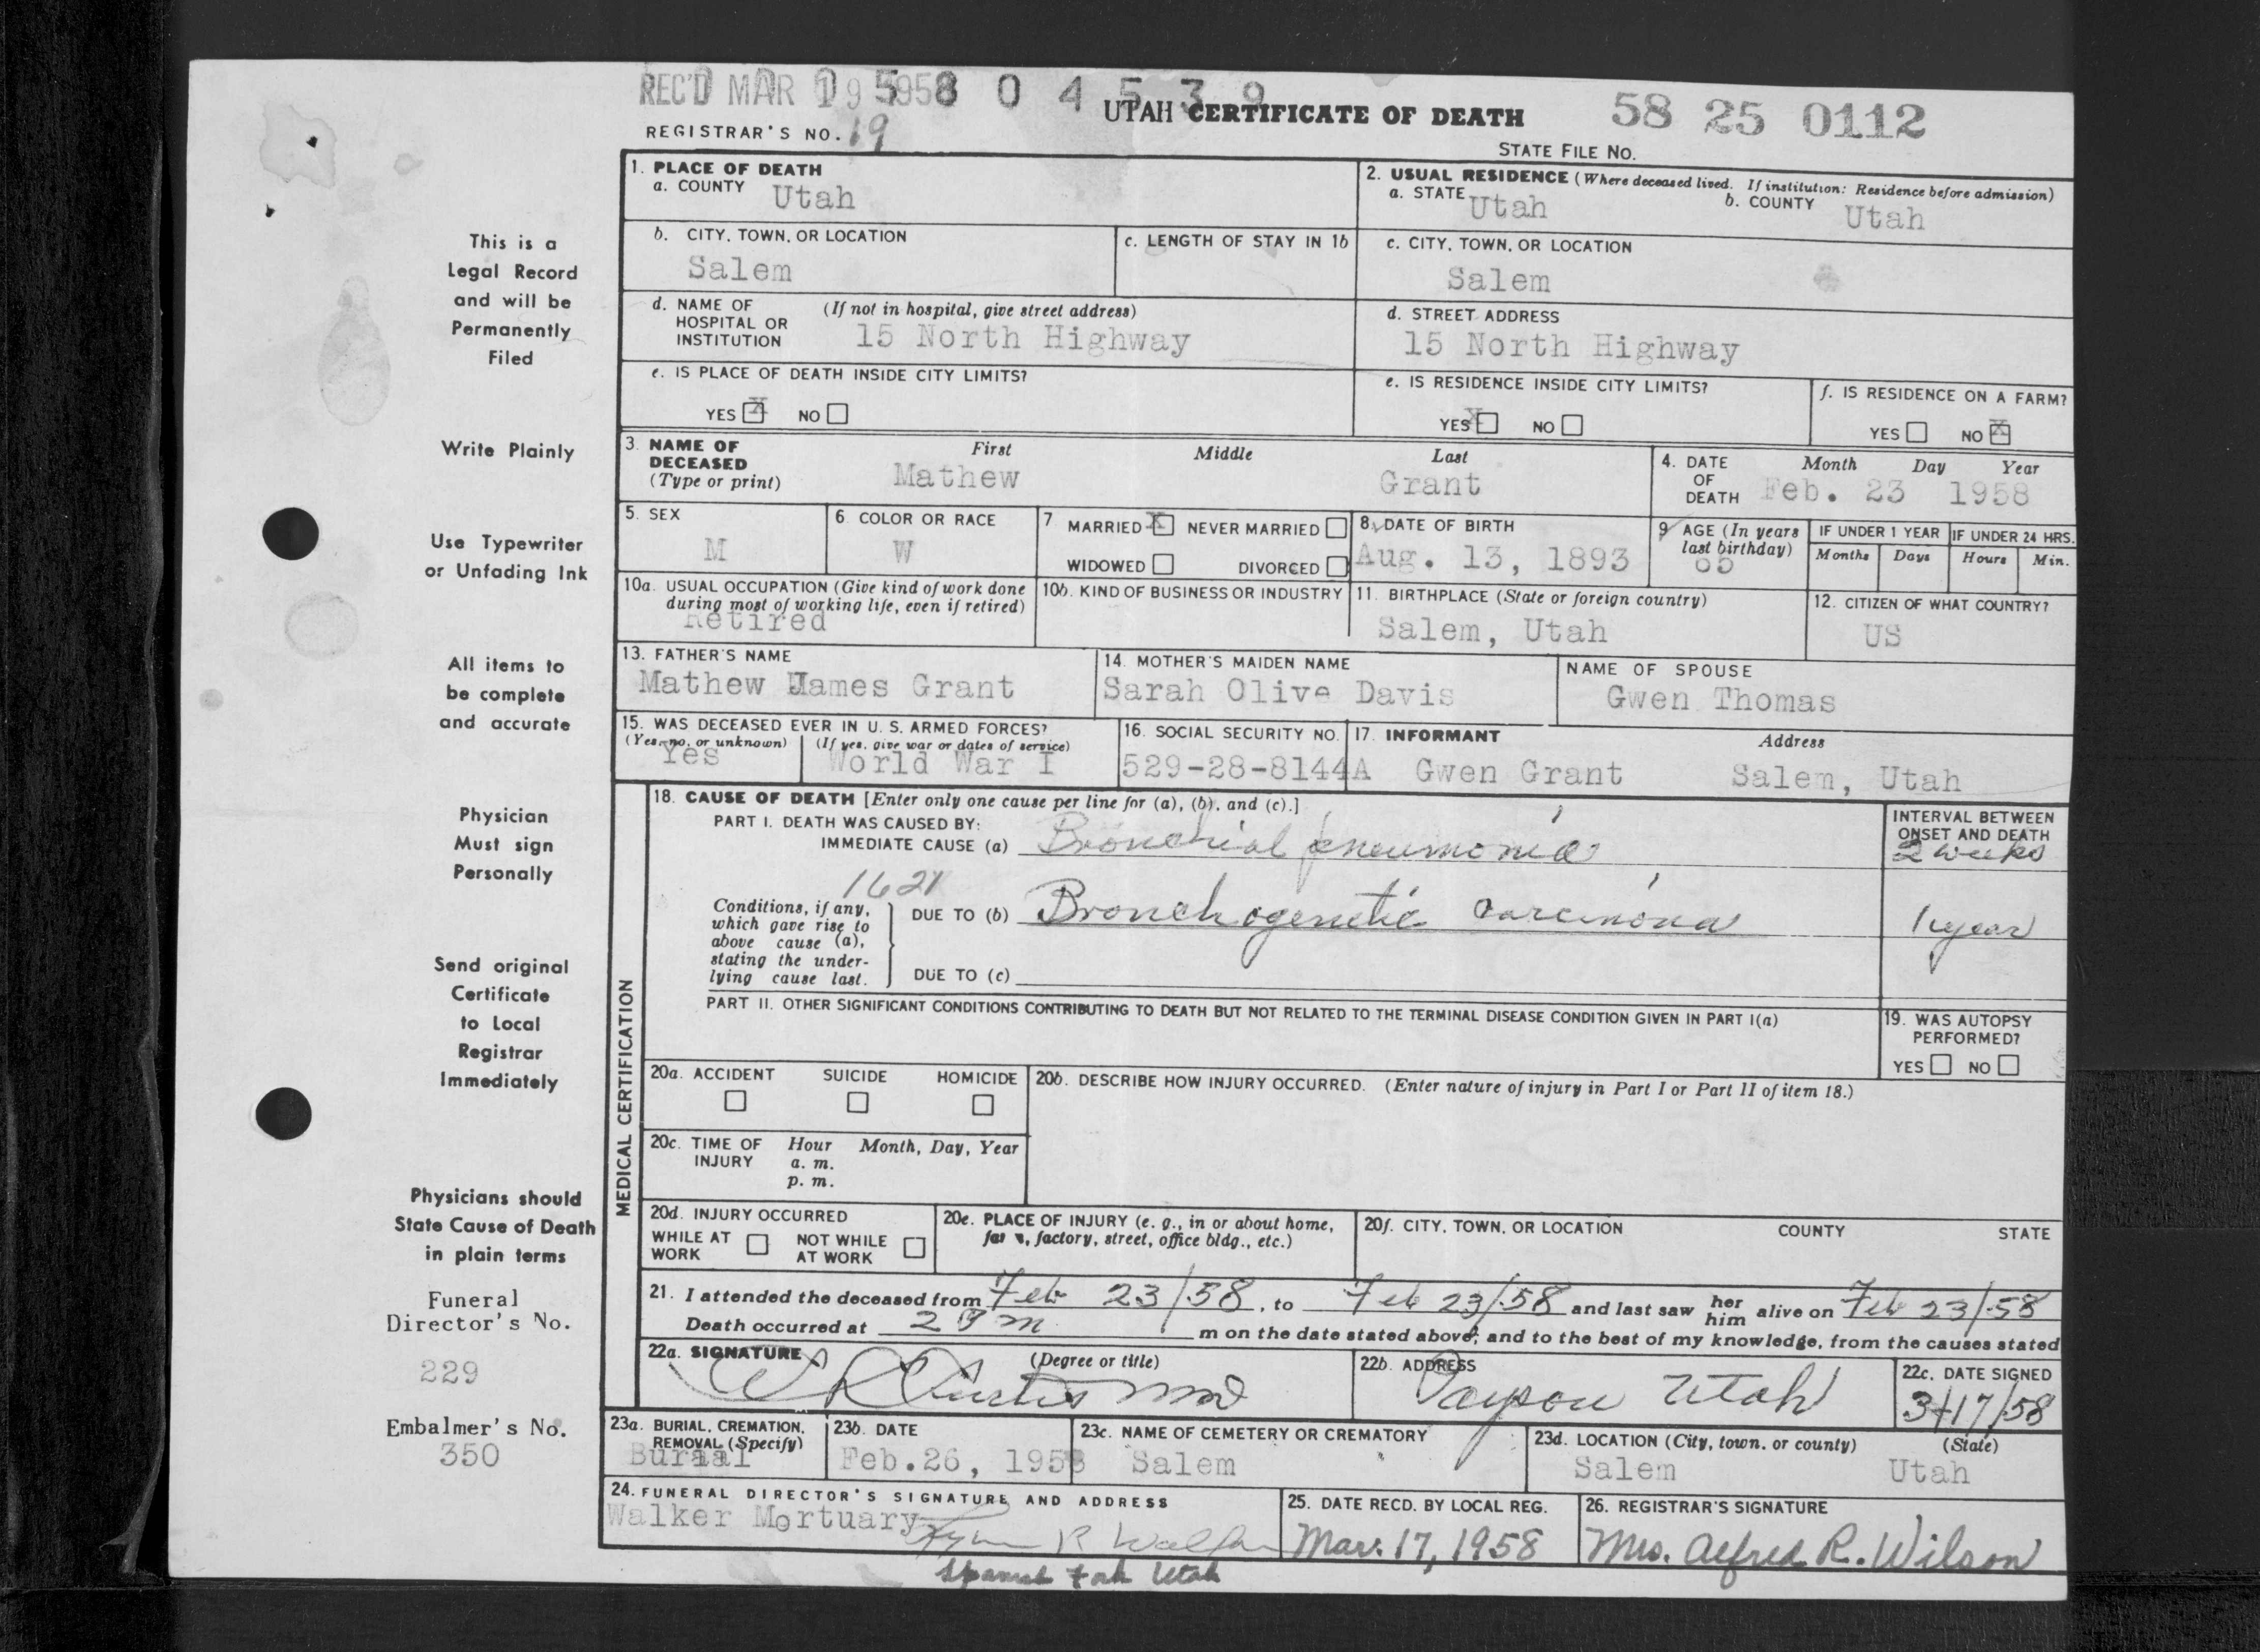 REC'D MAR 19 1958 58 0 4 5 3 9
UTAH CERTIFICATE OF DEATH 58 25 0112
REGISTRAR'S NO. 19
STATE FILE NO.
1. PLACE OF DEATH
a. COUNTY Utah
2. USUAL RESIDENCE (Where deceased lived. If institution: Residence before admission)
a. STATE Utah b. COUNTY Utah
b. CITY, TOWN, OR LOCATION Salem
c. LENGTH OF STAY IN 1b
c. CITY, TOWN, OR LOCATION Salem
d. NAME OF HOSPITAL OR INSTITUTION (If not in hospital, give street address)
15 North Highway
d. STREET ADDRESS
15 North Highway
e. IS PLACE OF DEATH INSIDE CITY LIMITS?
YES X NO
e. IS RESIDENCE INSIDE CITY LIMITS?
YES X NO
f. IS RESIDENCE ON A FARM?
YES NO X
3. NAME OF DECEASED (Type or print)
First Middle Last
Mathew Grant
4. DATE OF DEATH Month Day Year
Feb. 23 1958
5. SEX
M
6. COLOR OR RACE
W
7 MARRIED X NEVER MARRIED
WIDOWED DIVORCED
8. DATE OF BIRTH
Aug. 13, 1893
9 AGE (In years last birthday)
65
IF UNDER 1 YEAR
Months Days
IF UNDER 24 HRS.
Hours Min.
10a. USUAL OCCUPATION (Give kind of work done during most of working life, even if retired)
Retired
10b. KIND OF BUSINESS OR INDUSTRY
11. BIRTHPLACE (State or foreign country)
Salem, Utah
12. CITIZEN OF WHAT COUNTRY?
US
13. FATHER'S NAME
Mathew James Grant
14. MOTHER'S MAIDEN NAME
Sarah Olive Davis
NAME OF SPOUSE
Gwen Thomas
15. WAS DECEASED EVER IN U. S. ARMED FORCES?
(Yes, no, or unknown) (If yes, give war or dates of service)
Yes World War I
16. SOCIAL SECURITY NO.
529-28-8144A
17. INFORMANT Address
Gwen Grant Salem, Utah
18. CAUSE OF DEATH [Enter only one cause per line for (a), (b), and (c).]
PART I. DEATH WAS CAUSED BY:
IMMEDIATE CAUSE (a) Bronchial pneumonia
INTERVAL BETWEEN ONSET AND DEATH
2 weeks
1621
Conditions, if any, which gave rise to above cause (a), stating the underlying cause last.
DUE TO (b) Bronchogenetic carcinoma
1 year
DUE TO (c)
PART II. OTHER SIGNIFICANT CONDITIONS CONTRIBUTING TO DEATH BUT NOT RELATED TO THE TERMINAL DISEASE CONDITION GIVEN IN PART I(a)
19. WAS AUTOPSY PERFORMED?
YES NO
MEDICAL CERTIFICATION
20a. ACCIDENT SUICIDE HOMICIDE
20b. DESCRIBE HOW INJURY OCCURRED. (Enter nature of injury in Part I or Part II of item 18.)
20c. TIME OF INJURY Hour Month, Day, Year
a. m.
p. m.
20d. INJURY OCCURRED
WHILE AT WORK NOT WHILE AT WORK
20e. PLACE OF INJURY (e. g., in or about home, farm, factory, street, office bldg., etc.)
20f. CITY, TOWN, OR LOCATION COUNTY STATE
21. I attended the deceased from Feb 23/58, to Feb 23/58 and last saw her him alive on Feb 23/58
Death occurred at 2 Pm m on the date stated above; and to the best of my knowledge, from the causes stated
22a. SIGNATURE (Degree or title)
Curtis MD
22b. ADDRESS
Payson Utah
22c. DATE SIGNED
3/17/58
23a. BURIAL, CREMATION, REMOVAL (Specify)
Burial
23b. DATE
Feb.26, 1958
23c. NAME OF CEMETERY OR CREMATORY
Salem
23d. LOCATION (City, town, or county) (State)
Salem Utah
24. FUNERAL DIRECTOR'S SIGNATURE AND ADDRESS
Walker Mortuary R Walker
Spanish Fork Utah
25. DATE RECD. BY LOCAL REG.
Mar. 17, 1958
26. REGISTRAR'S SIGNATURE
Mrs. Alfred R. Wilson
This is a
Legal Record
and will be
Permanently
Filed
Write Plainly
Use Typewriter
or Unfading Ink
All items to
be complete
and accurate
Physician
Must sign
Personally
Send original
Certificate
to Local
Registrar
Immediately
Physicians should
State Cause of Death
in plain terms
Funeral
Director's No.
229
Embalmer's No.
350